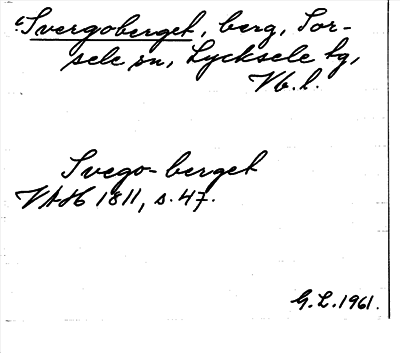 Svergoberget, berg, Sor-
sele sn, Lycksele tg,
Vb. l.
Svego-berget
VAH 1811, s. 47.
G. L. 1961.